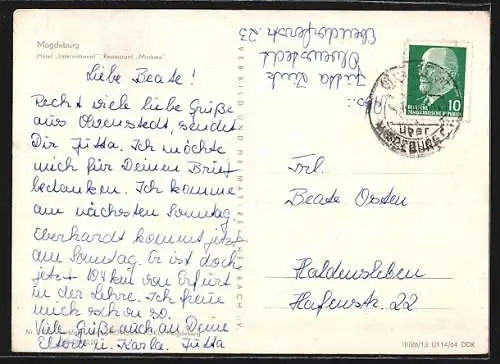 Magdeburg
Hotel „International", Restaurant „Moskwa"
Liebe Beate!
Recht viele liebe Grüße
aus Olvenstedt, sendet
Dir Jutta. Ich möchte
mich für Deinen Brief
bedanken. Ich komme
am nächsten Sonntag.
Eberhardt kommt jetzt
am Sonntag. Er ist doch
jetzt 104 km von Erfurt
in der Lehre. Ich freue
mich schon so.
Viele Grüße auch an Deine
Eltern u. Karla. Jutta
VEB BILD UND HEIMAT REICHENBACH i. V.
Abs.: Jutta
Olvenstedt
Ebendorferstr. 23
10
DEUTSCHE
DEMOKRATISCHE REPUBLIK
über
MAGDEBURG
Frl.
Beate Osten
Haldensleben
Hafenstr. 22
DDR